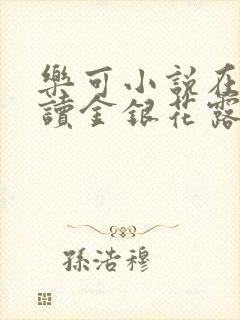 樂可小說在
讀金銀花露
孫浩穆